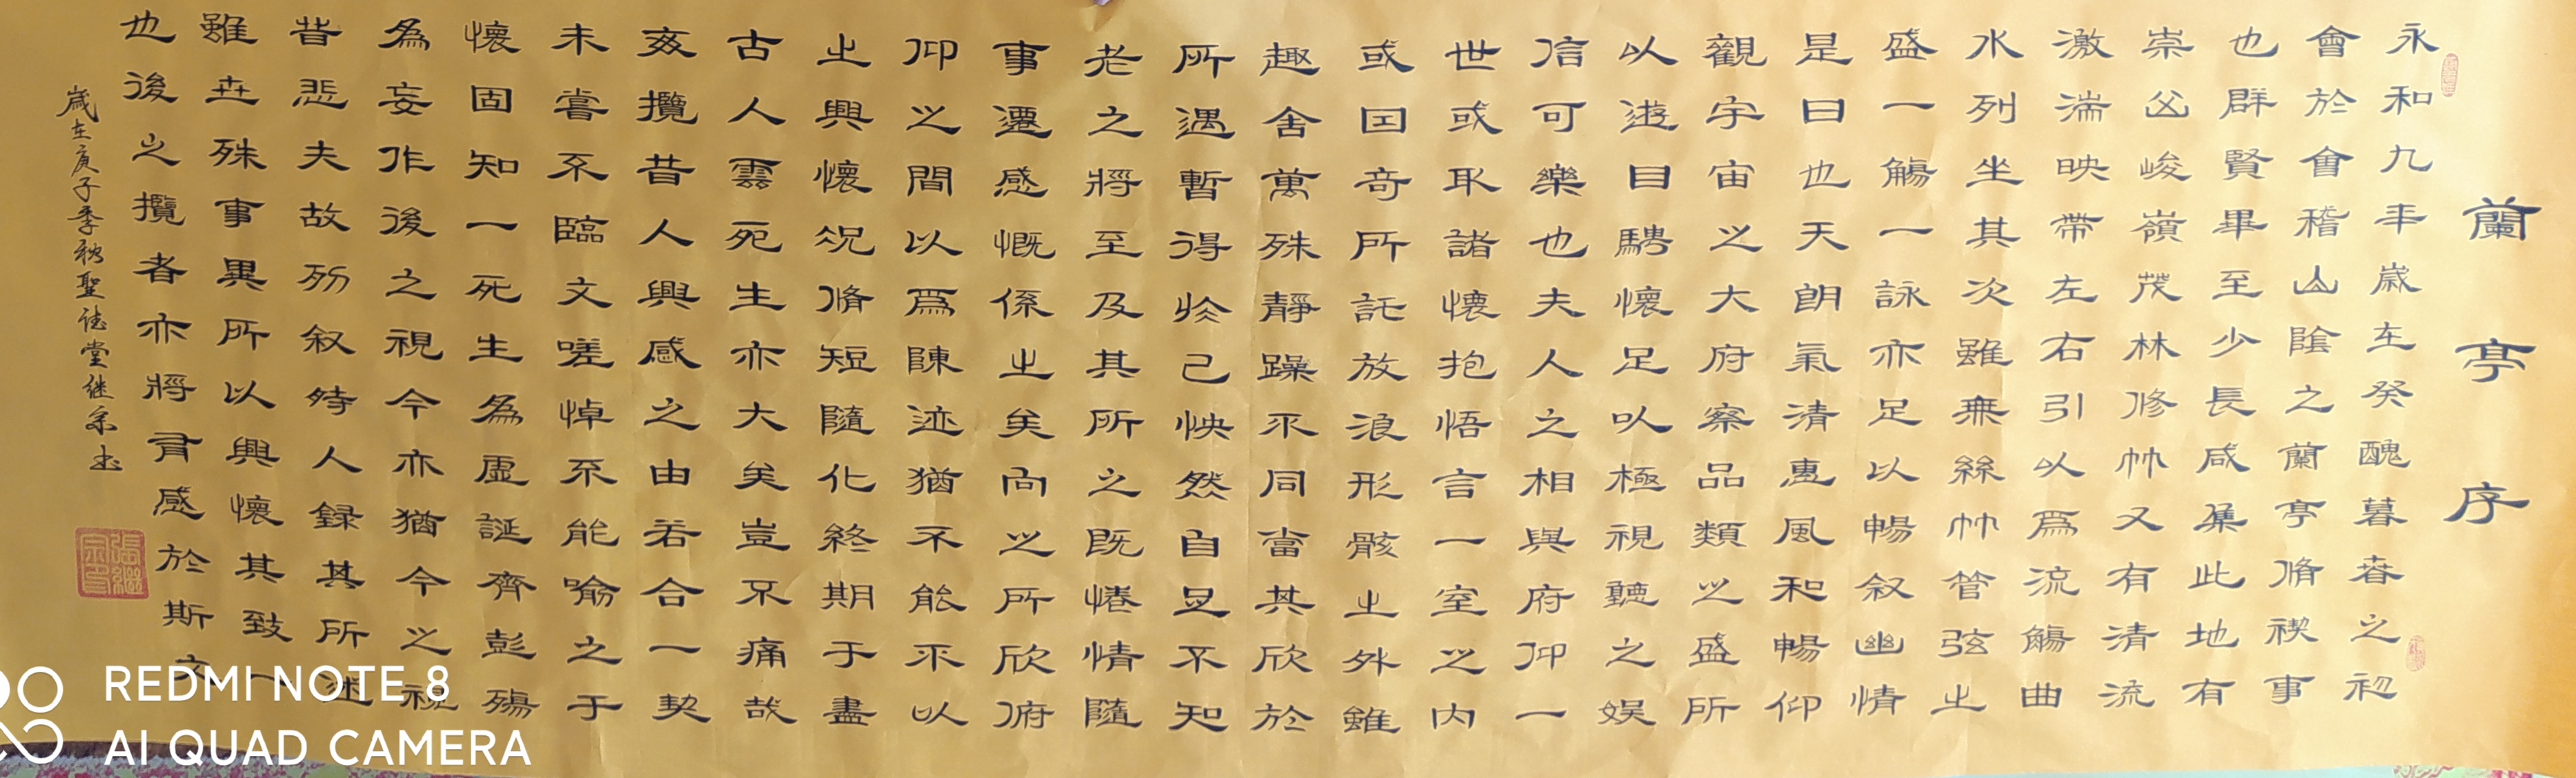 蘭亭序
永和九年歲在癸醜暮春之初
會於會稽山陰之蘭亭脩禊事
也群賢畢至少長咸集此地有
崇山峻嶺茂林修竹又有清流
激湍映帶左右引以爲流觴曲
水列坐其次雖無絲竹管弦之
盛一觴一詠亦足以暢叙幽情
是日也天朗氣清惠風和暢仰
觀宇宙之大府察品類之盛所
以遊目騁懷足以極視聽之娛
信可樂也夫人之相與府仰一
世或取諸懷抱悟言一室之内
或因奇所託放浪形骸之外雖
趣舍萬殊靜躁不同當其欣於
所遇暫得於己怏然自足不知
老之將至及其所之既惓情隨
事遷感慨係之矣向之所欣俯
仰之間以爲陳迹猶不能不以
之興懷況脩短隨化終期于盡
古人雲死生亦大矣豈不痛哉
每攬昔人興感之由若合一契
未嘗不臨文嗟悼不能喻之于
懷固知一死生為虛誕齊彭殤
為妄作後之視今亦猶今之視
昔悲夫故列叙時人録其所述
雖世殊事異所以興懷其致一
也後之攬者亦將有感於斯文
歲在庚子季秋聖德堂继宗书
張繼宗印
REDMI NOTE 8
AI QUAD CAMERA